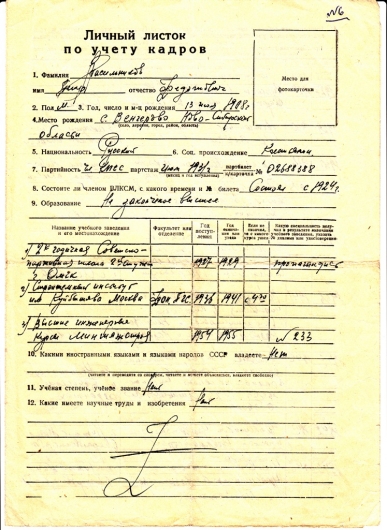 №6
Личный листок
по учету кадров
Место для
фотокарточки
1. Фамилия Красильников
имя отчество
2. Пол м. 3. Год, число и м-ц рождения 13 1908г
4. Место рождения с. Венгерово Ново-Сибирская
(село, деревня, город, район, область)
области
5. Национальность Русский 6. Соц. происхождение
7. Партийность чл КПСС партстаж партбилет
кандкарточка № 02688388
8. Состоите ли членом ВЛКСМ, с какого времени и № билета Состоял с 1924г.
9. Образование Не законченое высшее
Название учебного заведения и его местонахождение
Факультет или отделение
Год поступления
Год окончания или ухода
Если не окончил, то с какого курса ушел
Какую специальность получил в результате окончания учебного заведения, указать № диплома или удостоверения
1) 2х годичная Советско-
партийная школа 2й ступени 1927 1929 пропагандист
г. Омск
2) институт
им Куйбышева Москва 1936 1941 с 4го
3) Высшие инженерные
курсы 1954 1955 № 233
10. Какими иностранными языками и языками народов СССР владеете Нет
(читаете и переводите со словарем, читаете и можете объясняться, владеете свободно)
11. Учёная степень, учёное звание Нет
12. Какие имеете научные труды и изобретения Нет